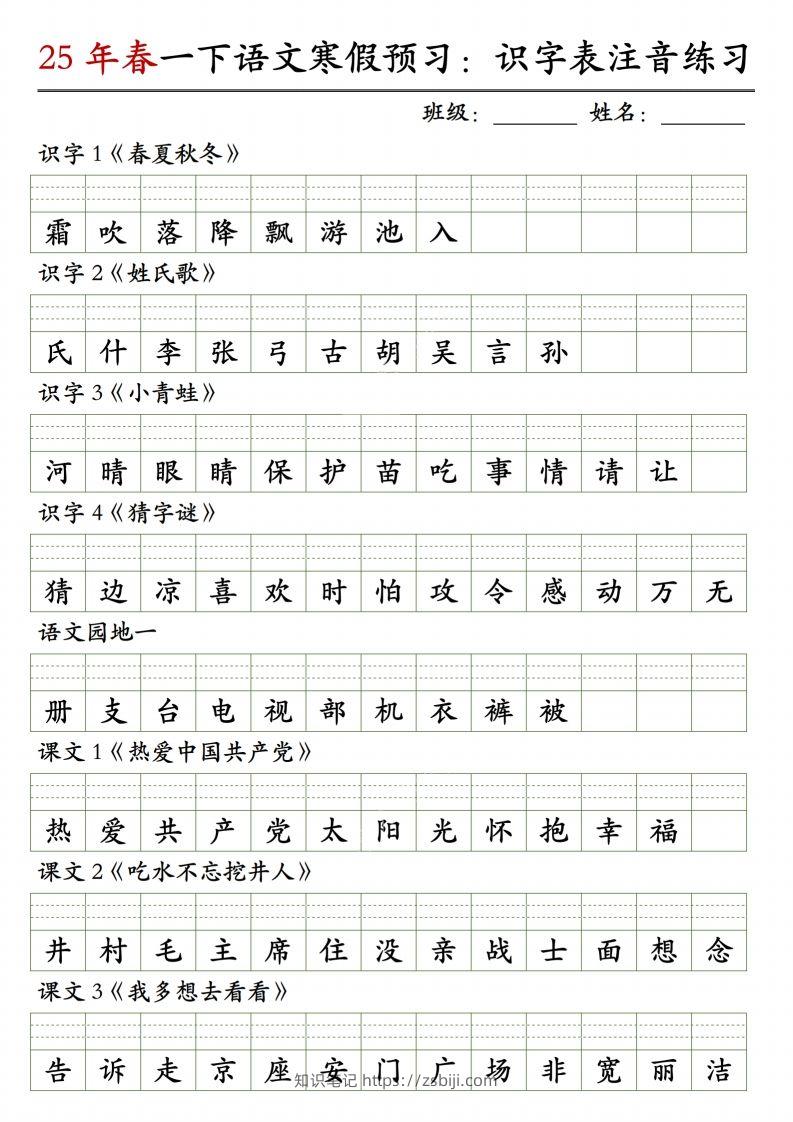 25 年春一下语文寒假预习：识字表注音练习
班级：________ 姓名：________
识字 1《春夏秋冬》
霜 吹 落 降 飘 游 池 入
识字 2《姓氏歌》
氏 什 李 张 弓 古 胡 吴 言 孙
识字 3《小青蛙》
河 晴 眼 睛 保 护 苗 吃 事 情 请 让
识字 4《猜字谜》
猜 边 凉 喜 欢 时 怕 攻 令 感 动 万 无
语文园地一
册 支 台 电 视 部 机 衣 裤 被
课文 1《热爱中国共产党》
热 爱 共 产 党 太 阳 光 怀 抱 幸 福
课文 2《吃水不忘挖井人》
井 村 毛 主 席 住 没 亲 战 士 面 想 念
课文 3《我多想去看看》
告 诉 走 京 座 安 门 广 场 非 宽 丽 洁
知识笔记 https://zsbiji.com